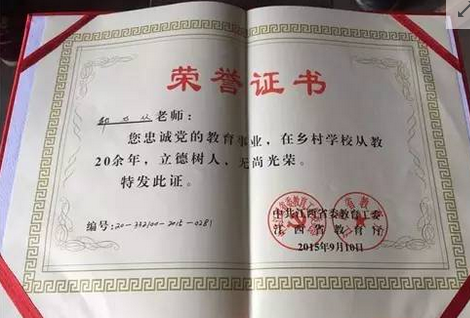 荣誉证书
老师：
您忠诚党的教育事业，在乡村学校从教
20余年，立德树人，无尚光荣。
特发此证。
编号：20-332100-2015-0281
中共江西省委教育工委
江西省教育厅
2015年9月10日